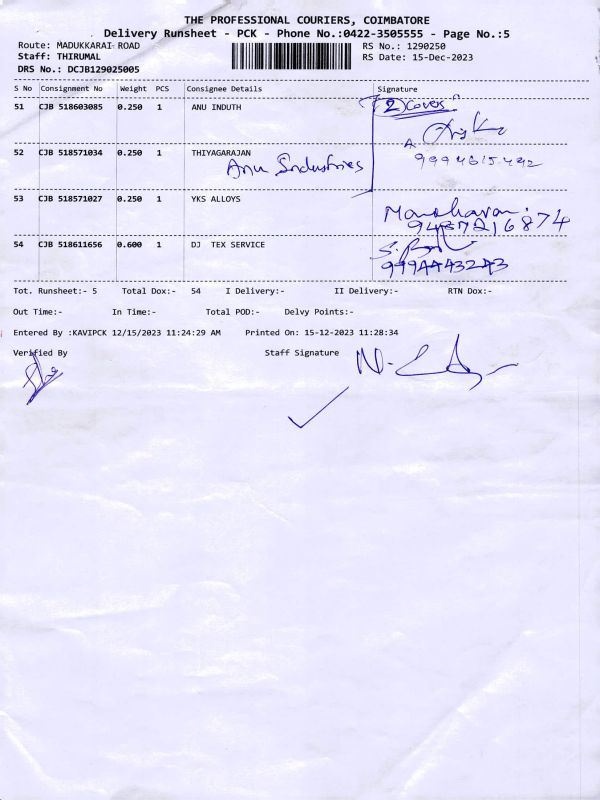 THE PROFESSIONAL COURIERS, COIMBATORE
Delivery Runsheet - PCK - Phone No.:0422-3505555 - Page No.:5
Route: MADUKKARAI ROAD RS No.: 1290250
Staff: THIRUMAL RS Date: 15-Dec-2023
DRS No.: DCJB129025005
S No Consignment No Weight PCS Consignee Details Signature
51 CJB 518603085 0.250 1 ANU INDUTH (2) Covers
52 CJB 518571034 0.250 1 THIYAGARAJAN
Anu Industries
53 CJB 518571027 0.250 1 YKS ALLOYS
54 CJB 518611656 0.600 1 DJ TEX SERVICE
Tot. Runsheet:- 5 Total Dox:- 54 I Delivery:- II Delivery:- RTN Dox:-
Out Time:- In Time:- Total POD:- Delvy Points:-
Entered By :KAVIPCK 12/15/2023 11:24:29 AM Printed On: 15-12-2023 11:28:34
Verified By Staff Signature